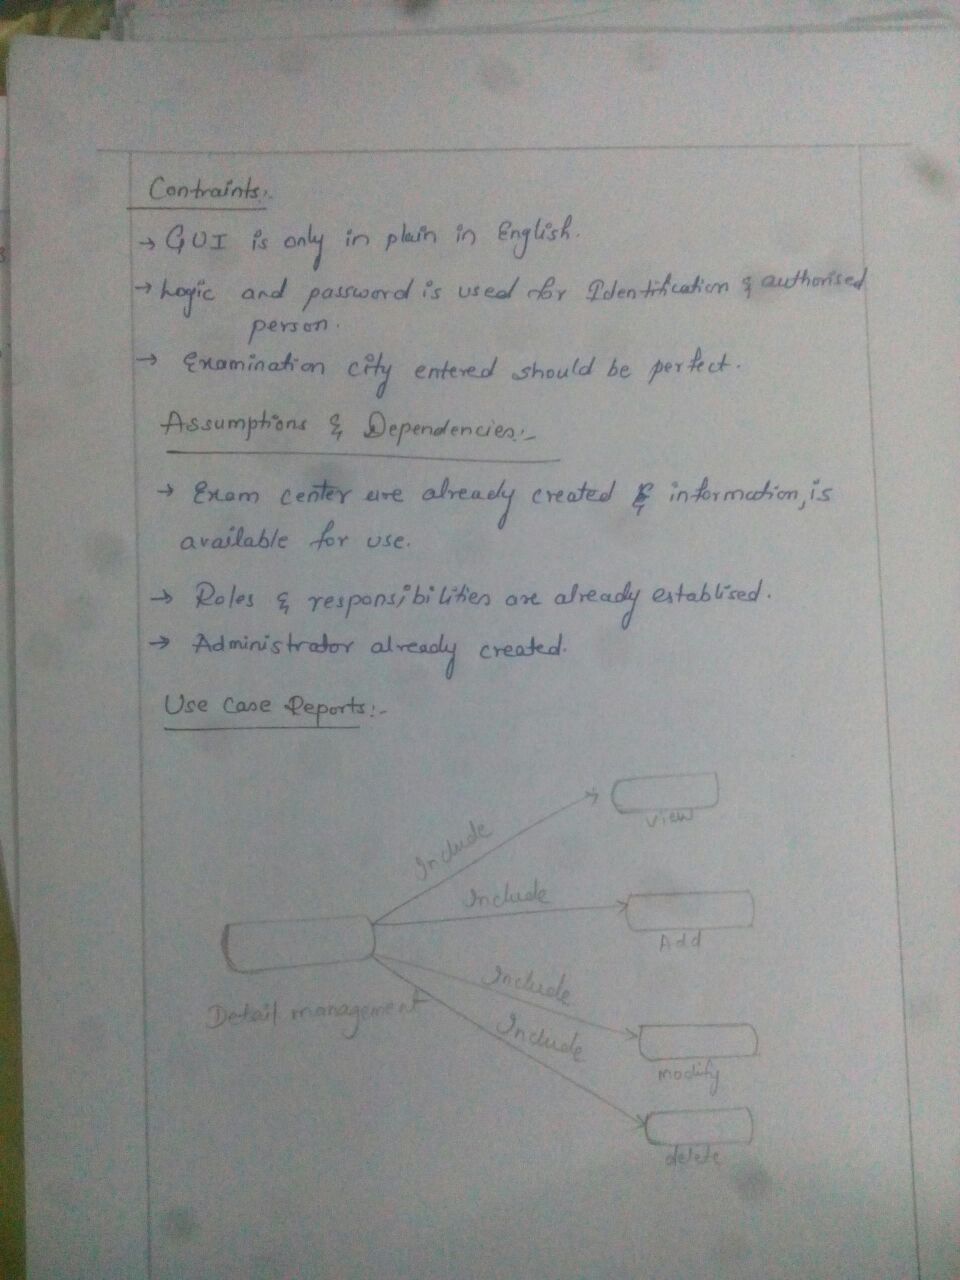 Contraints:-
→ GUI is only in plain in English.
→ Logic and password is used for Identification & authorised
person.
→ Examination city entered should be perfect.
Assumptions & Dependencies:-
→ Exam center are already created & information, is
available for use.
→ Roles & responsibilities are already establised.
→ Administrator already created.
Use Case Reports:-
view
Include
Include
Add
Detail management
Include
Include
modify
delete